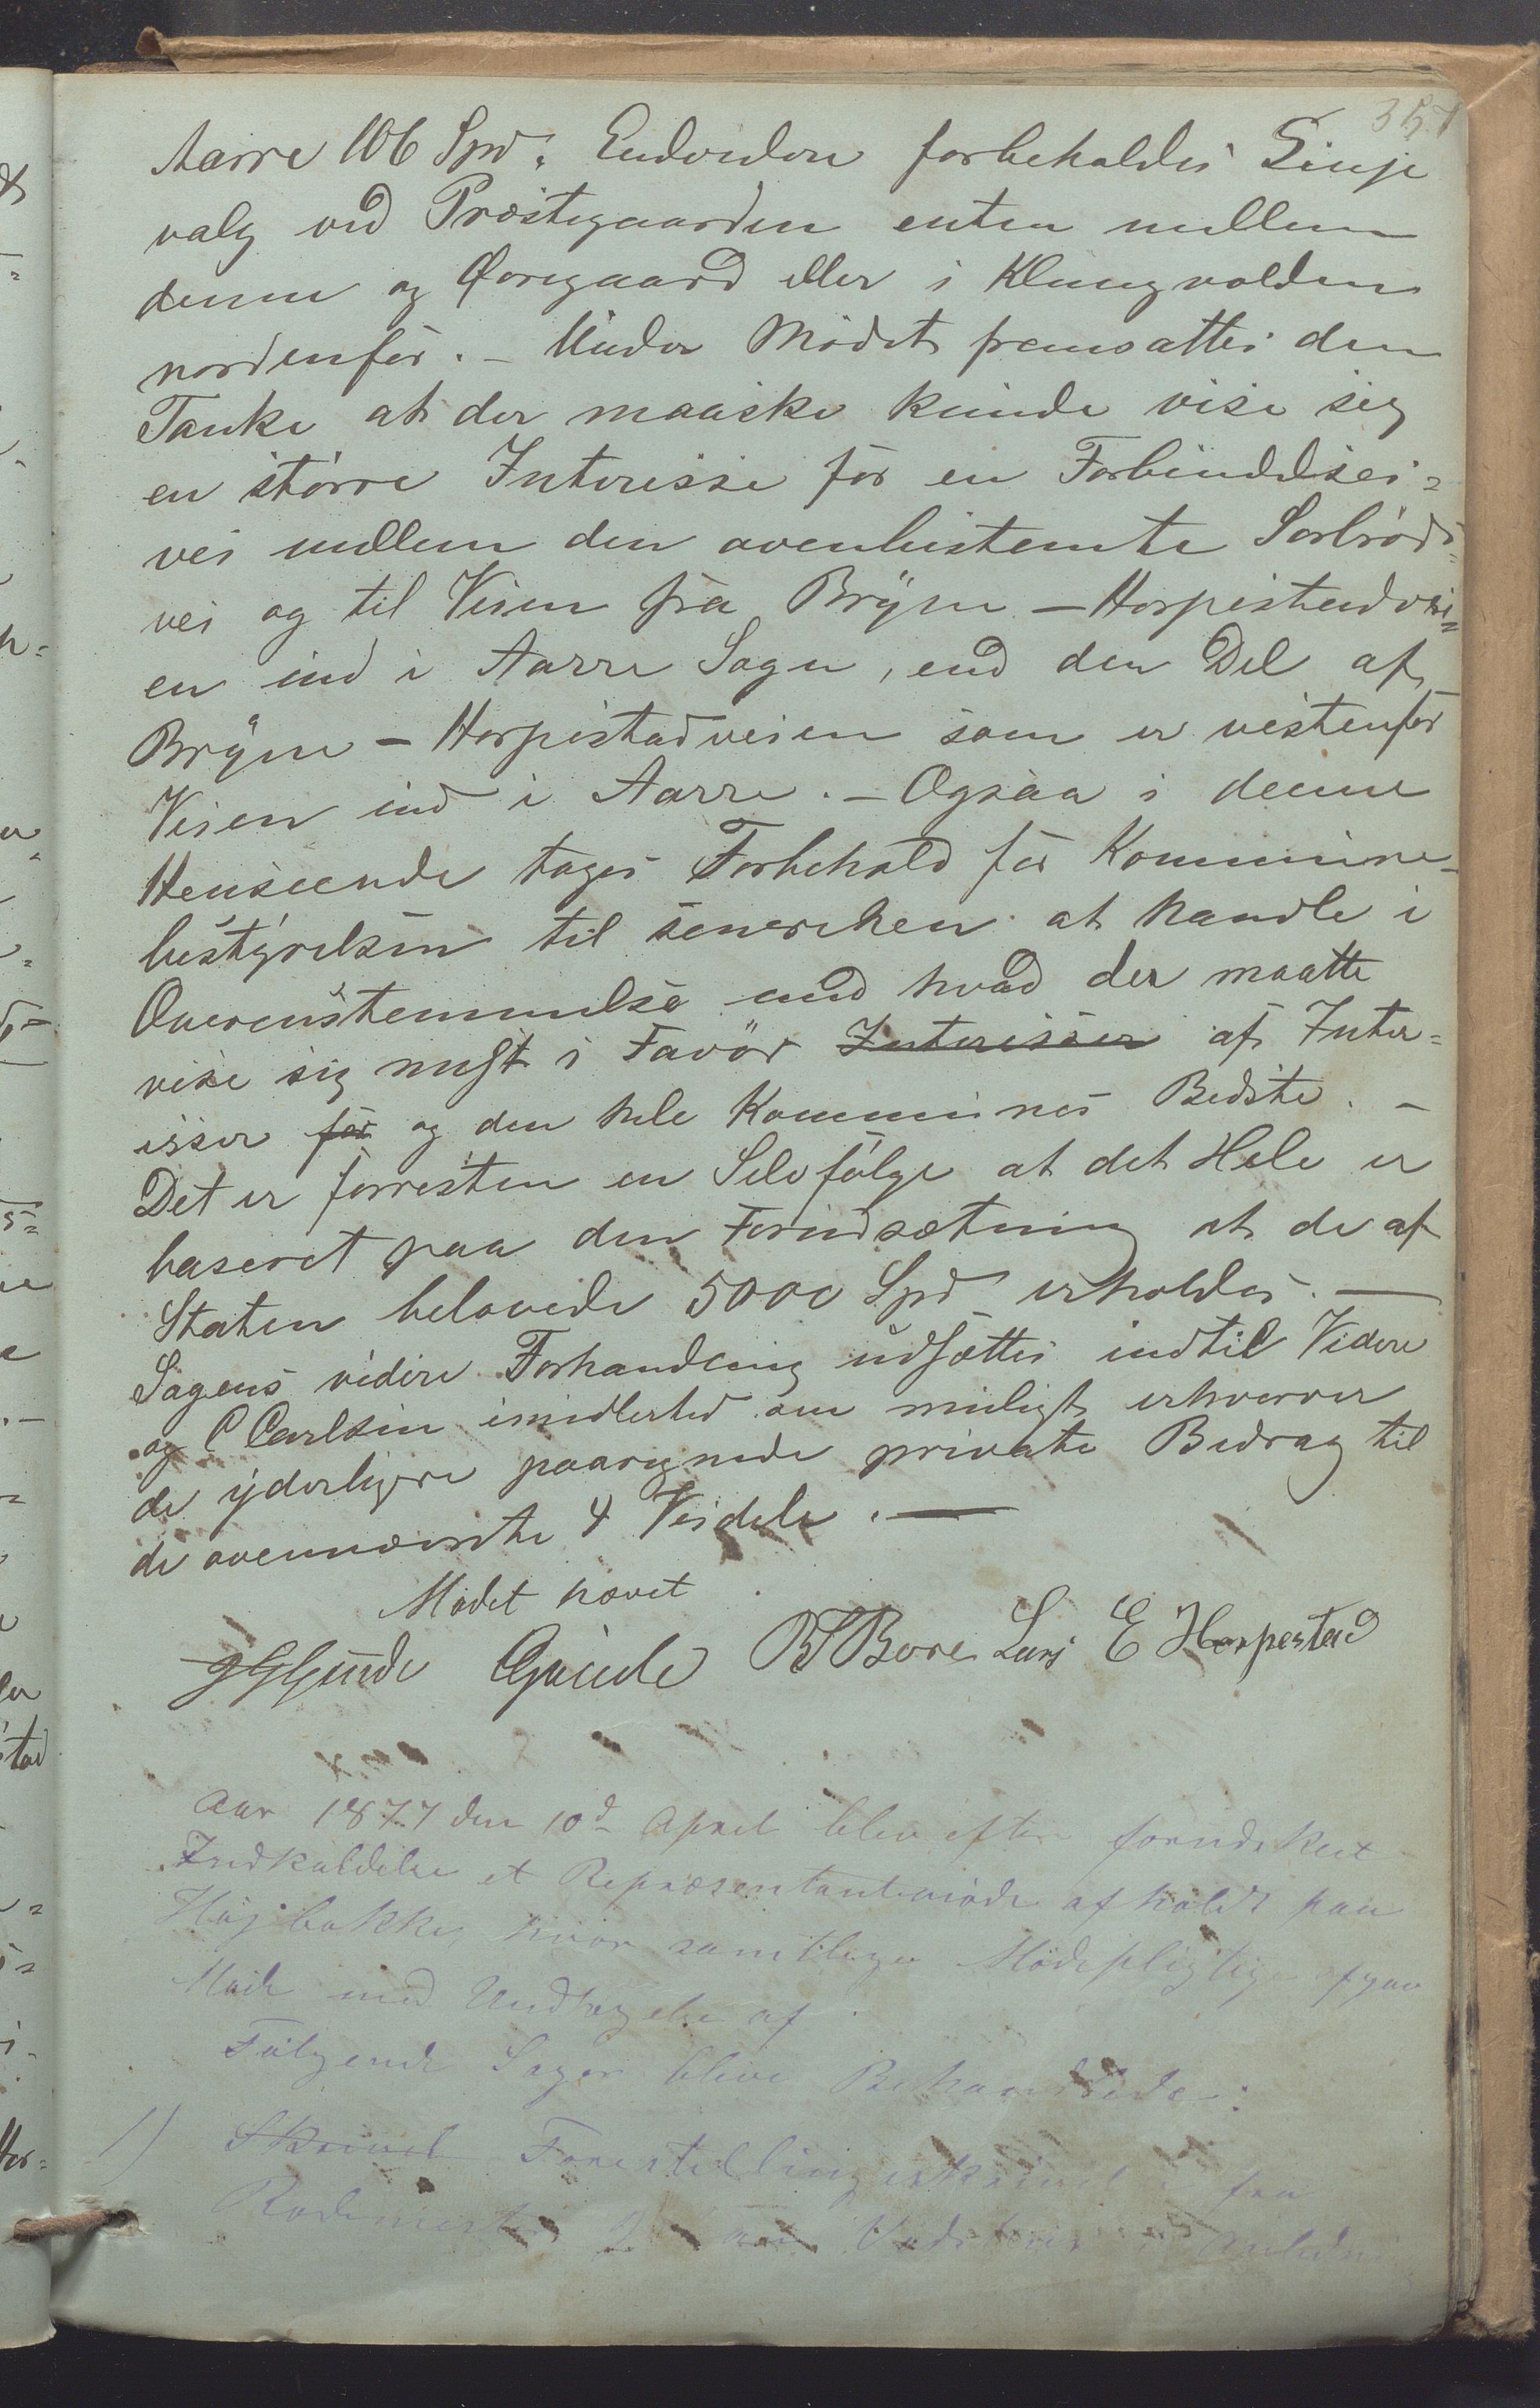 357
Aarre 106 Spd. Endvidere forbeholdes Linje
valg ved Præstegaarden enten mellem
denne og Øvregaard eller i Klungvolden
nordenfor. – Under Mødet fremsattes den
Tanke at der maaske kunde vise sig
en større Interesse for en Forbindelses=
vei mellem den ovenbestemte Sørbrøds=
vei og til Veien fra Bryne – Horpestadvei=
en ind i Aarre Sogn, end den Del af
Bryne – Horpestadveien som er vestenfor
Veien ind i Aarre. – Ogsaa i denne
Henseende tages Forbehold for Kommune-
bestyrelsen til senerehen at handle i
Overenstemmelse med hvad der maatte
vise sig mest i Favör Interesser af Inter=
esser for og den hele Kommunes Bedste. –
Det er forresten en Selvfølge at det Hele er
baseret paa den Forudsætning at de af
Staten belovede 5000 Spd erholdes. —
Sagens videre Forhandling udsættes indtil Videre
og C Carlsen imidlertid om muligt erhverver
de yderligere paaregnede private Bedrag til
de ovennævnte 4 Veidele. —
Mødet hævet
Gjeride BSBore Lars E Horpestad
Aar 1877 den 10d April blev efter forudsket
Indkaldelse et Repræsentantmøde afholdt paa
Høgbakke, hvor samtlige Mødepligtige afgav
Møde med Undtagelse af
Følgende Sager bleve Behandlede:
1) Skrivel Forestillingsskrivel fra
Rodemester 2 i Anledn